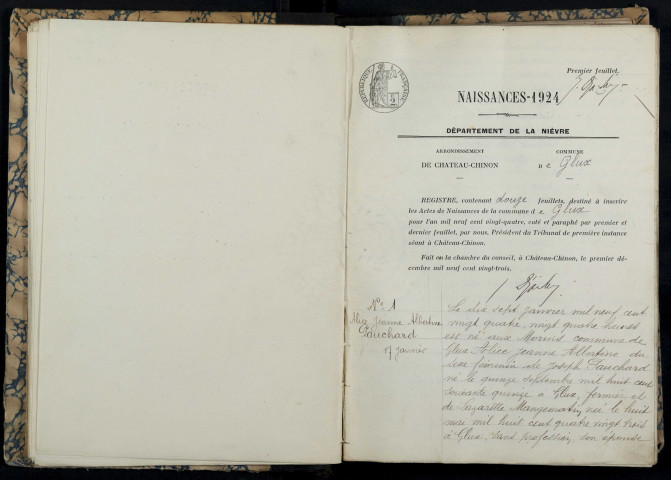 Premier feuillet.
RÉPUBLIQUE FRANÇAISE
NAISSANCES-1924
DÉPARTEMENT DE LA NIÈVRE
ARRONDISSEMENT
COMMUNE
DE CHATEAU-CHINON
De Glux
REGISTRE, contenant douze feuillets, destiné à inscrire
les Actes de Naissances de la commune de Glux
pour l'an mil neuf cent vingt-quatre, coté et paraphé par premier et
dernier feuillet, par nous, Président du Tribunal de première instance
séant à Château-Chinon.
Fait en la chambre du conseil, à Château-Chinon, le premier dé-
cembre mil neuf cent vingt-trois.
No 1
Jeanne Albertine
Pauchard
17 janvier
Le dix sept janvier mil neuf cent
vingt quatre, vingt quatre heures
est né aux Morins commune de
Glux Alice Jeanne Albertine du
sexe féminin de Joseph Pauchard
né le quinze septembre mil huit cent
soixante quinze à Glux, fermier et
de Lazarette Mangematin, née le huit
mai mil huit cent quatre vingt trois
à Glux, sans profession, son épouse